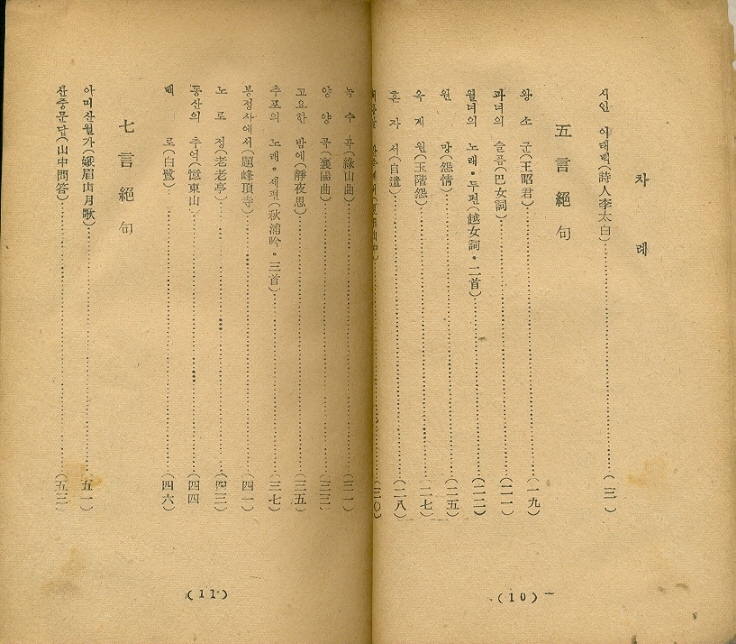 차례
시인 이태백(詩人李太白)……(三)
五言絕句
왕소군(王昭君)……(一九)
파녀의 슬픔(巴女詞)……(二一)
월녀의 노래•두편(越女詞•二首)……(二二)
원망(怨情)……(二五)
옥계원(玉階怨)……(二七)
혼자서(自遣)……(二八)
(三〇)
녹수곡(綠山曲)……(三一)
양양곡(襄陽曲)……(三三)
고요한 밤에(靜夜思)……(三五)
추포의 노래•세편(秋浦吟•三首)……(三七)
봉정사에서(題峰頂寺)……(四一)
노로정(老老亭)……(四三)
동산의 추억(憶東山)……(四四)
백로(白鷺)……(四六)
七言絕句
아미산월가(娥眉山月歌)……(五一)
산중문답(山中問答)……(五三)
(10)
(11)